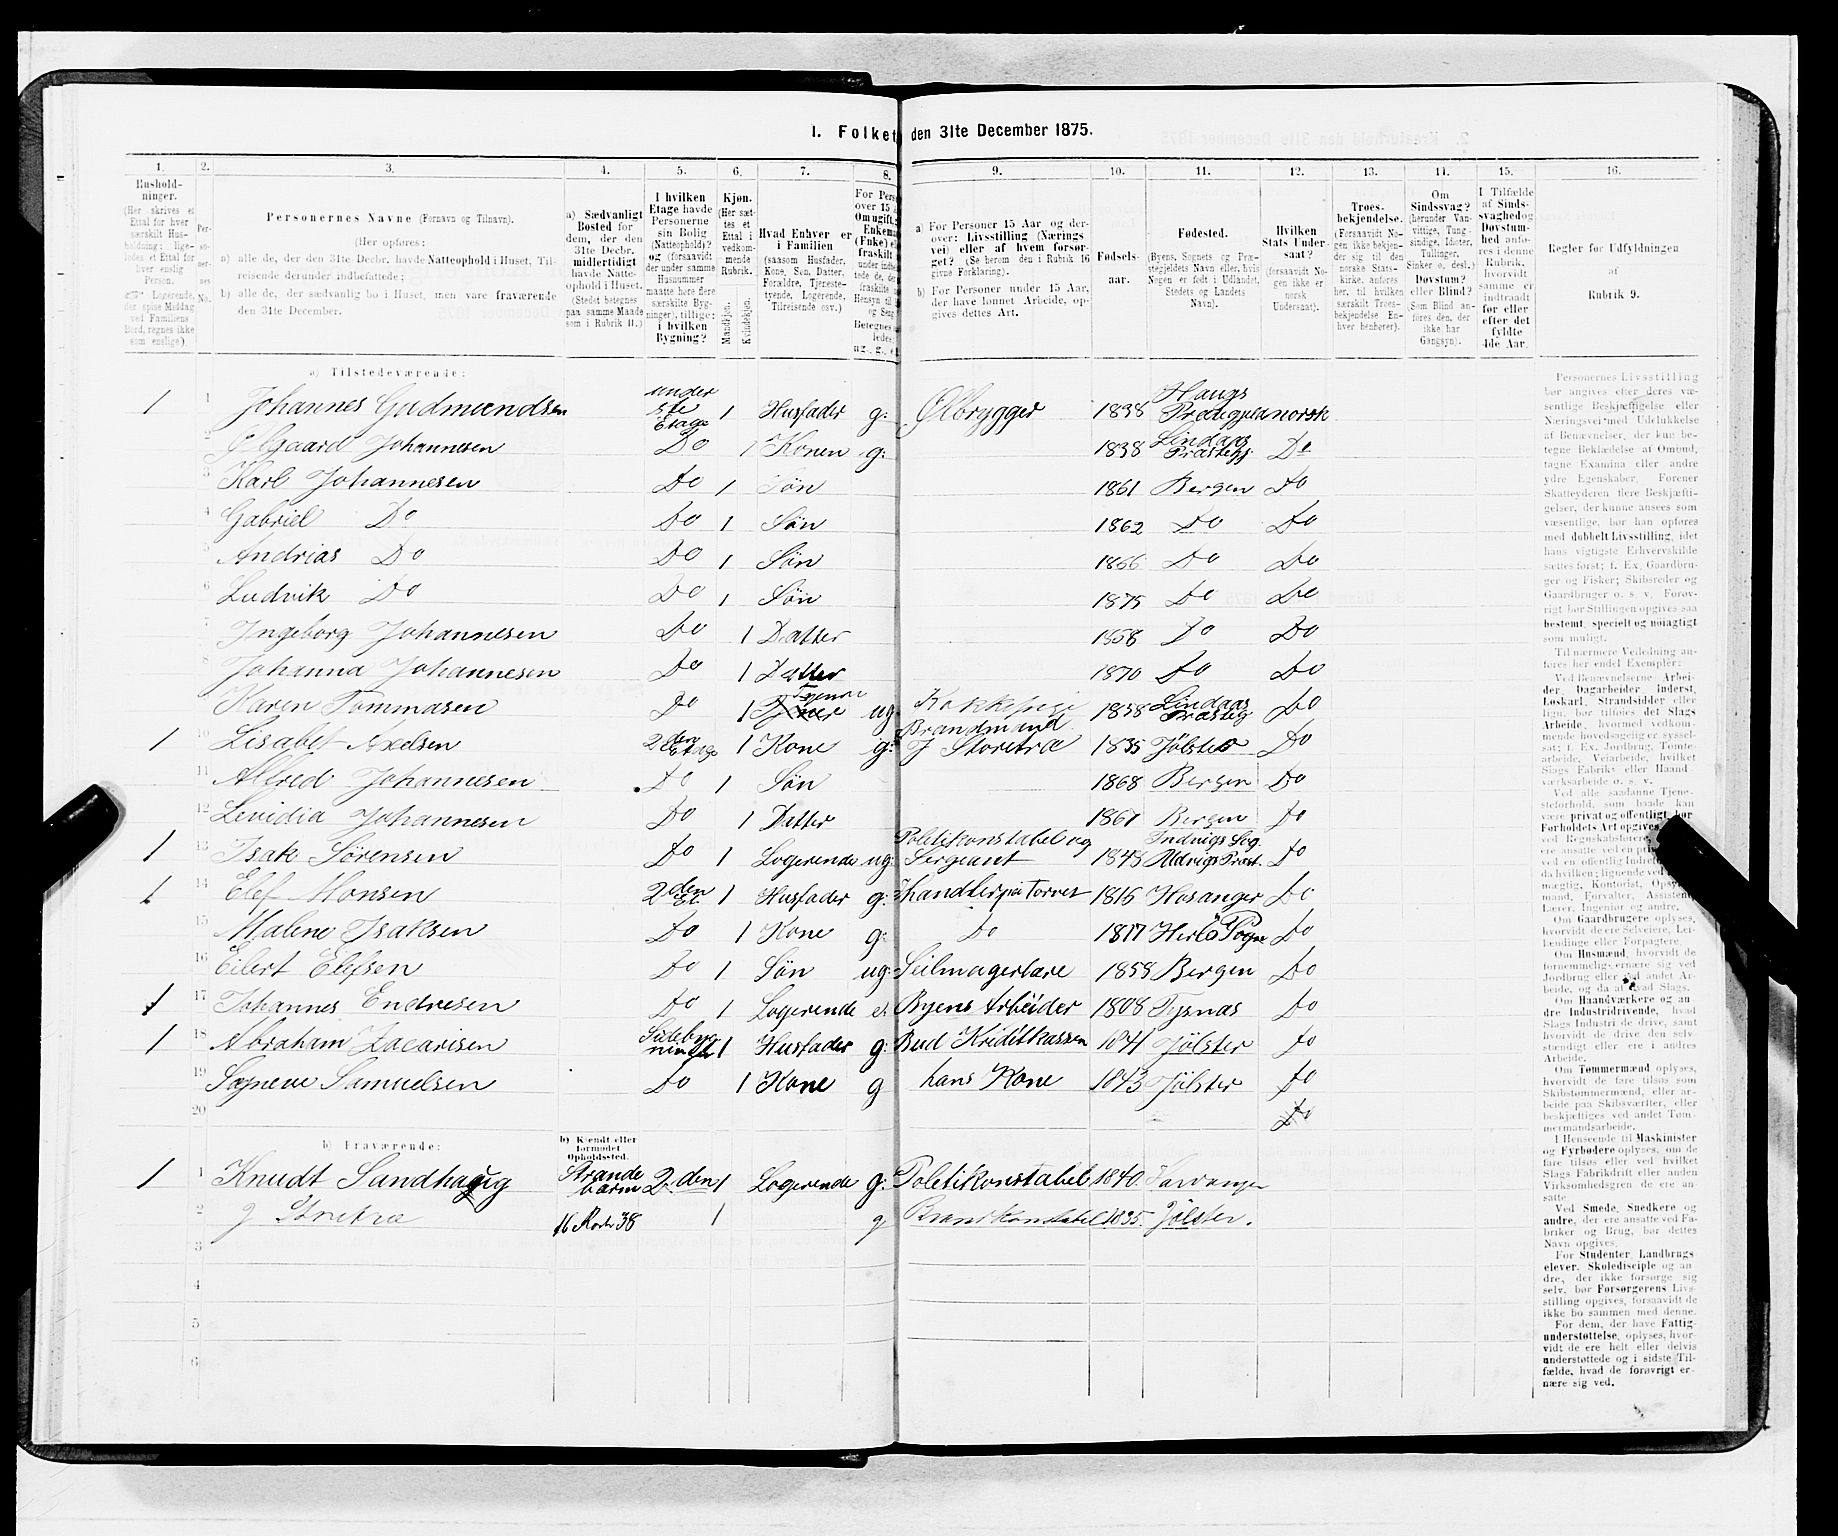 1. Folket den 31te December 1875.
1. 2. 3. 4. 5. 6. 7. 8. 9. 10. 11. 12. 13. 14. 15. 16.
Hushold-
ninger.
(Her skrives et
Ettal for hver
særskilt Hus-
holdning; lige-
ledes et Ettal for
hver enslig
Person.
Logerende,
der spise Middag
ved Familiens
Bord, regnes ikke
som enslige).
Per-
so-
ner-
nes
No.
Personernes Navne (Fornavn og Tilnavn).
(Her opføres:
a) alle de, der den 31te Decbr. havde Natteophold i Huset, Til-
reisende derunder indbefattede;
b) alle de, der sædvanlig bo i Huset, men vare fraværende
den 31te December.
a) Sædvanligt
Bosted for
dem, der den
31te Decbr.
midlertidigt
havde Natte-
ophold i Huset.
(Stedet betegnes
paa samme Maade
som i Rubrik 11.)
I hvilken
Etage havde
Personerne
sin Bolig
(Natteophold)?
og (forsaavidt
der under samme
Husnummer
maatte høre flere
særskilte Byg-
ninger), tillige:
i hvilken
Bygning?
Kjøn.
(Her sæt-
tes et
Ettal i
vedkom-
mende
Rubrik.
Mandkjøn.
Kvindekjøn.
Hvad Enhver er
i Familien
(saasom Husfader,
Kone, Søn, Datter,
Forældre, Tjeneste-
tyende, Logerende,
Tilreisende osv.)
For Pers
over 15
Om ugift,
Enkem
(Enke) e
fraskilt
a) For Personer 15 Aar og der-
over: Livsstilling (Nærings
vei) eller af hvem forsør-
get? (Se herom den i Rubrik 16
givne Forklaring).
b) For Personer under 15 Aar,
der have lønnet Arbeide, op-
gives dettes Art.
Fødsels-
aar.
Fødested.
(Byens, Sognets og Præ-
stegjeldets Navn eller, hvis
Nogen er født i Udlandet,
Stedets og Landets
Navn).
Hvilken
Stats Under-
saat?
(forsaavidt No-
gen ikke er
norsk
Undersaat).
Troes-
bekjendelse.
(Forsaavidt No-
gen ikke bekjen-
der sig til den
norske Stats-
kirke, anføres
her, til hvilken
særskilt Troes-
bekjendelse En-
hver henhører).
Om
Sindssvag?
(herunder Van-
vittige, Tung-
sindige, Idioter,
Tullinger,
Sinker o. desl.)
Døvstum?
eller Blind?
(Som Blind an-
føres den, der
ikke har
Gangsyn).
I Tilfælde
af Sinds-
svaghed og
Døvstum-
hed anfø-
res i denne
Rubrik,
hvorvidt
samme er
indtraadt
før eller
efter det
fyldte
4de Aar.
Regler for Udfyldningen
af
Rubrik 9.
a) Tilstedeværende:
1 1 Johannes Gudmundsen under 5te Etage 1 Husfader g: Ølbrygger 1838 Haugs norsk
2 Johannesen Do 1 Konen g: 1838 Lindaas Præstegj Do
3 Karl Johannesen Do 1 Søn 1861 Bergen Do
4 Gabriel Do Do 1 Søn 1862 Do Do
5 Andrias Do Do 1 Søn 1866 Do Do
6 Ludvik Do Do 1 Søn 1875 Do Do
7 Ingeborg Johannesen Do 1 Datter 1858 Do Do
8 Johanna Johannesen Do 1 Datter 1870 Do Do
9 Karen Tommasen Do 1 ug 1838 Lindaas Præsteg Do
1 10 Lisabet Axelsen 2den Etage 1 Kone g: Brandmand J Storetræ 1835 Jølster Do
11 Alfred Johannesen Do 1 Søn 1868 Bergen Do
12 Johannesen Do 1 Datter 1861 Bergen Do
1 13 Isak Sørensen Do 1 Logerende ug: Politikonstabel og Sergeant 1843 Indvigs Sog. Præst. Do
1 14 Elef Monsen 2den Et. 1 Husfader g: handler paa Torvet 1816 Hosanger Do
15 Malene Isaksen Do 1 Kone g: Do 1817 Herlø Do
16 Eilert Elefsen Do 1 Søn ug: Seilmagerlære 1858 Bergen Do
1 17 Johannes Endresen Do 1 Logerende e: Byens Arbeider 1808 Tysnæs Do
1 18 Abraham Zacarisen Sidebygningen 1 Husfader g: Bud Kriditkassen 1841 Jølster Do
19 Samuelsen Do 1 Kone g hans Kone 1843 Jølster Do
20 Do
b) Fraværende:
b) Kjendt eller
formodet
Opholdssted.
1 1 Knudt Sundhaug Strandebarm 2den 1 Logerende g: Politikonstabel 1840. Hardanger
2 J Storetræ 1 g Brandkonstabel 1835. Jølster.
3
4
5
6
Personernes Livsstilling
bør angives efter deres væ-
sentlige Beskjæftigelse eller
Næringsvei med Udelukkelse
af Benævnelser, der kun be-
tegne Beklædelse af Ombud,
tagne Examina eller andre
ydre Egenskaber. Forener
Skatteyderen flere Beskjæfti-
gelser, der kunne ansees som
væsentlige, bør han opføres
med dobbelt Livsstilling, idet
hans vigtigste Erhvervskilde
sættes først; f. Ex. Gaardbru-
ger og Fisker; Skibsreder og
Gaardbruger o. s. v. Forøv-
rigt bør Stillingen opgives saa
bestemt, specielt og nøiagtigt
som muligt.
Til nærmere Veiledning an-
føres her endel Exempler:
Ved Benævnelserne: Arbei-
der, Dagarbeider, Inderst,
Løskarl, Strandsidder eller
lign. bør tilføies det Slags
Arbeide, hvormed vedkom-
mende hovedsagelig er syssel-
sat; f. Ex. Jordbrug, Tømte-
arbeide, Veiarbeide, hvilket
Slags Fabrik- eller Haand-
værksarbeide o. s. v.
Ved alle saadanne Tjene-
steforhold, som baade kan
være privat og offentligt, bør
Forholdets Art opgives,
Om Gaardbrugere oplyses,
hvorvidt de ere Selveiere, Lei-
lændinge eller Forpagtere.
Om Husmænd, hvorvidt de
fornemmeligen nære sig ved
Jordbrug eller ved andet Ar-
beide, og da af hvad Slags.
Om Haandværkere og an-
dre Industridrivende, hvad
Slags Industri de drive, samt
hvorvidt de drive den selv-
stændigt eller ere i andres
Arbeide.
Om Tømmermænd oplyses,
hvorvidt de fare tilsøs som
Skibstømmermænd, eller ar-
beide paa Skibsværfter, eller
beskjæftiges ved andet Tøm-
mermandsarbeide.
I Henseende til Maskinister
og Fyrbødere oplyses, om de
fare tilsøs eller ved hvilket
Slags Fabrikdrift eller anden
Virksomhedsgren de ere an-
satte.
Ved Smede, Snedkere og
andre, der ere ansatte ved Fa-
briker og Brug, bør dettes
Navn opgives.
For Studenter, Landbrugs-
elever, Skoledisciple og an-
dre, der ikke forsørge sig
selv, bør Forsørgerens Livs-
stilling opgives, forsaavidt de
ikke bo sammen med denne.
For dem, der have Fattig-
understøttelse, oplyses, hvor-
vidt de ere helt eller delvis
understøttede og i sidste Til-
fælde, hvad de forøvrigt er-
nære sig ved.